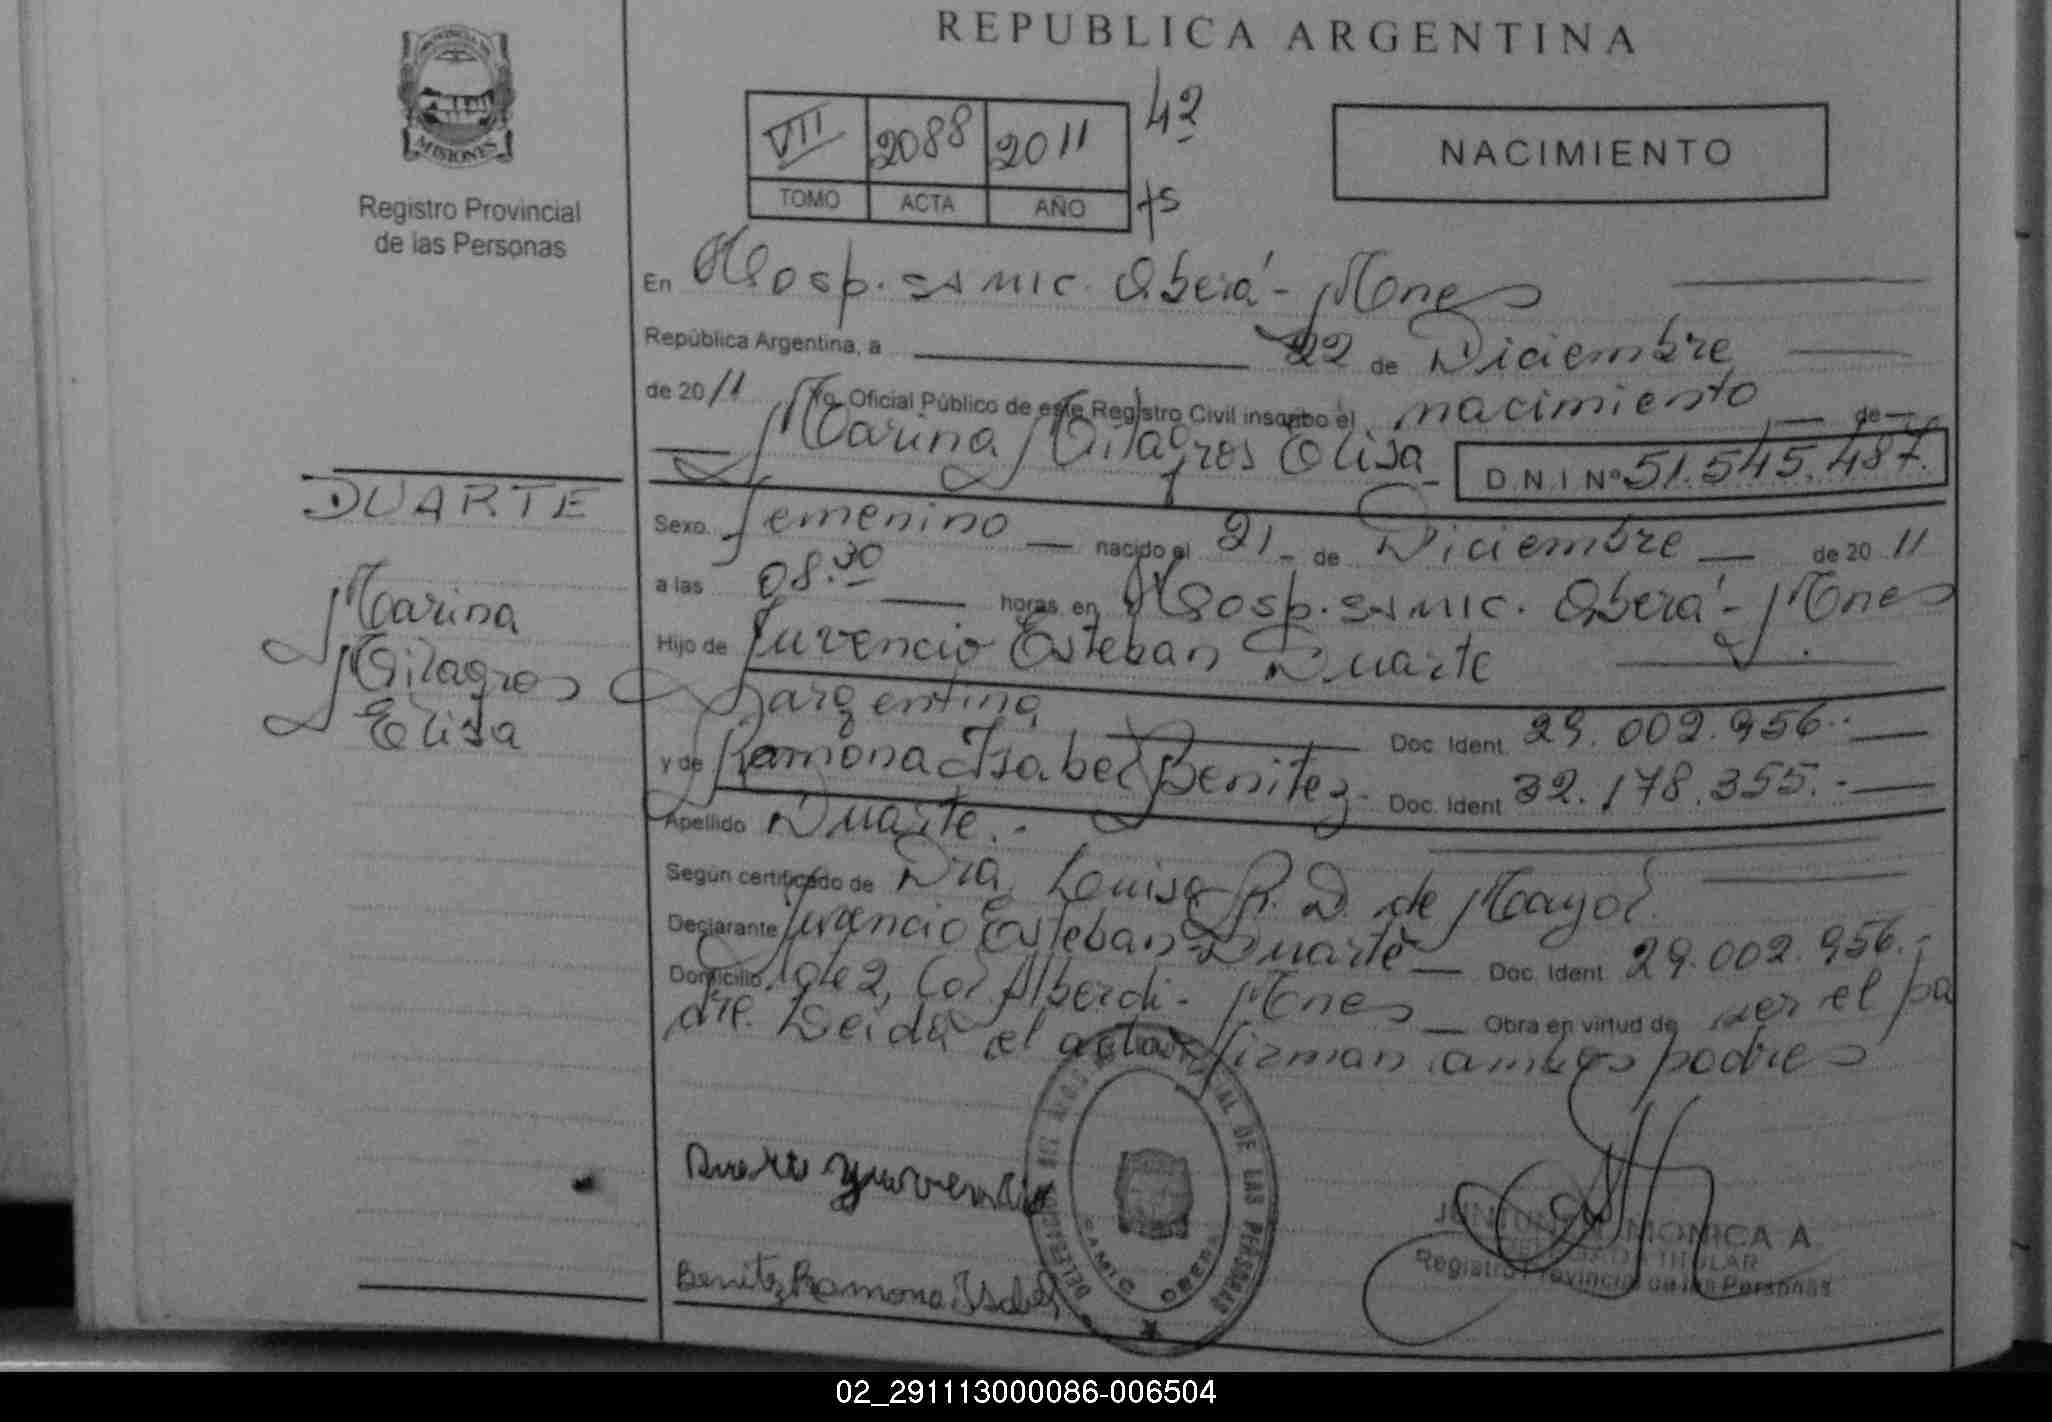 REPUBLICA ARGENTINA
PROVINCIA DE
MISIONES
Registro Provincial
de las Personas
VII 2088 2011 42
TOMO ACTA AÑO fs
NACIMIENTO
En Hosp. SAMIC. Oberá - Mnes
República Argentina, a 22 de Diciembre
de 2011 Yo, Oficial Público de este Registro Civil inscribo el nacimiento de
Marina Milagros Elisa - D.N.I Nº 51.545.487.
DUARTE
Marina
Milagros
Elisa
Sexo. femenino nacido el 21 - de Diciembre de 2011
a las 08.30 horas, en Hosp. SAMIC. Oberá - Mnes
Hijo de Juvencio Esteban Duarte
argentina Doc. Ident. 29.002.956.-
y de Ramona Isabel Benitez - Doc. Ident 32.178.355.-
Apellido Duarte.-
Según certificado de Dra. Luisa R. D. de Mayol
Declarante Juvencio Esteban Duarte Doc. Ident 29.002.956.-
Domicilio Lote 2, Col Alberdi - Mnes Obra en virtud de ser el pa
dre. Leída el acta firman ambos padres
Duarte Yuvencio
Benitez Ramona Isabel
DELEGACION DE LAS PERSONAS
SAMIC OBERA
MONICA A
TITULAR
Registro Provincial de las Personas
02_291113000086-006504